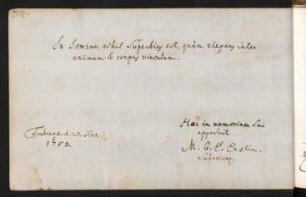 In homine nihil superbius est, quàm elegans inter
animam & corpus vinculum.
Tubingae d. 
1762.
Hac in memoriam sui
apposuit
M. C. E. Enslin.